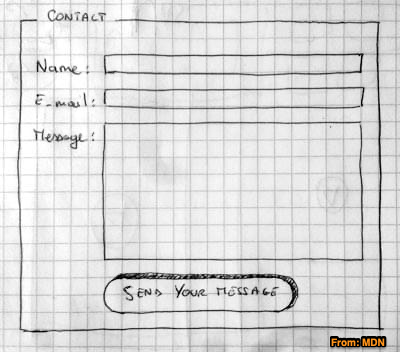 CONTACT
Name:
E_mail:
Message:
SEND YOUR MESSAGE
From: MDN